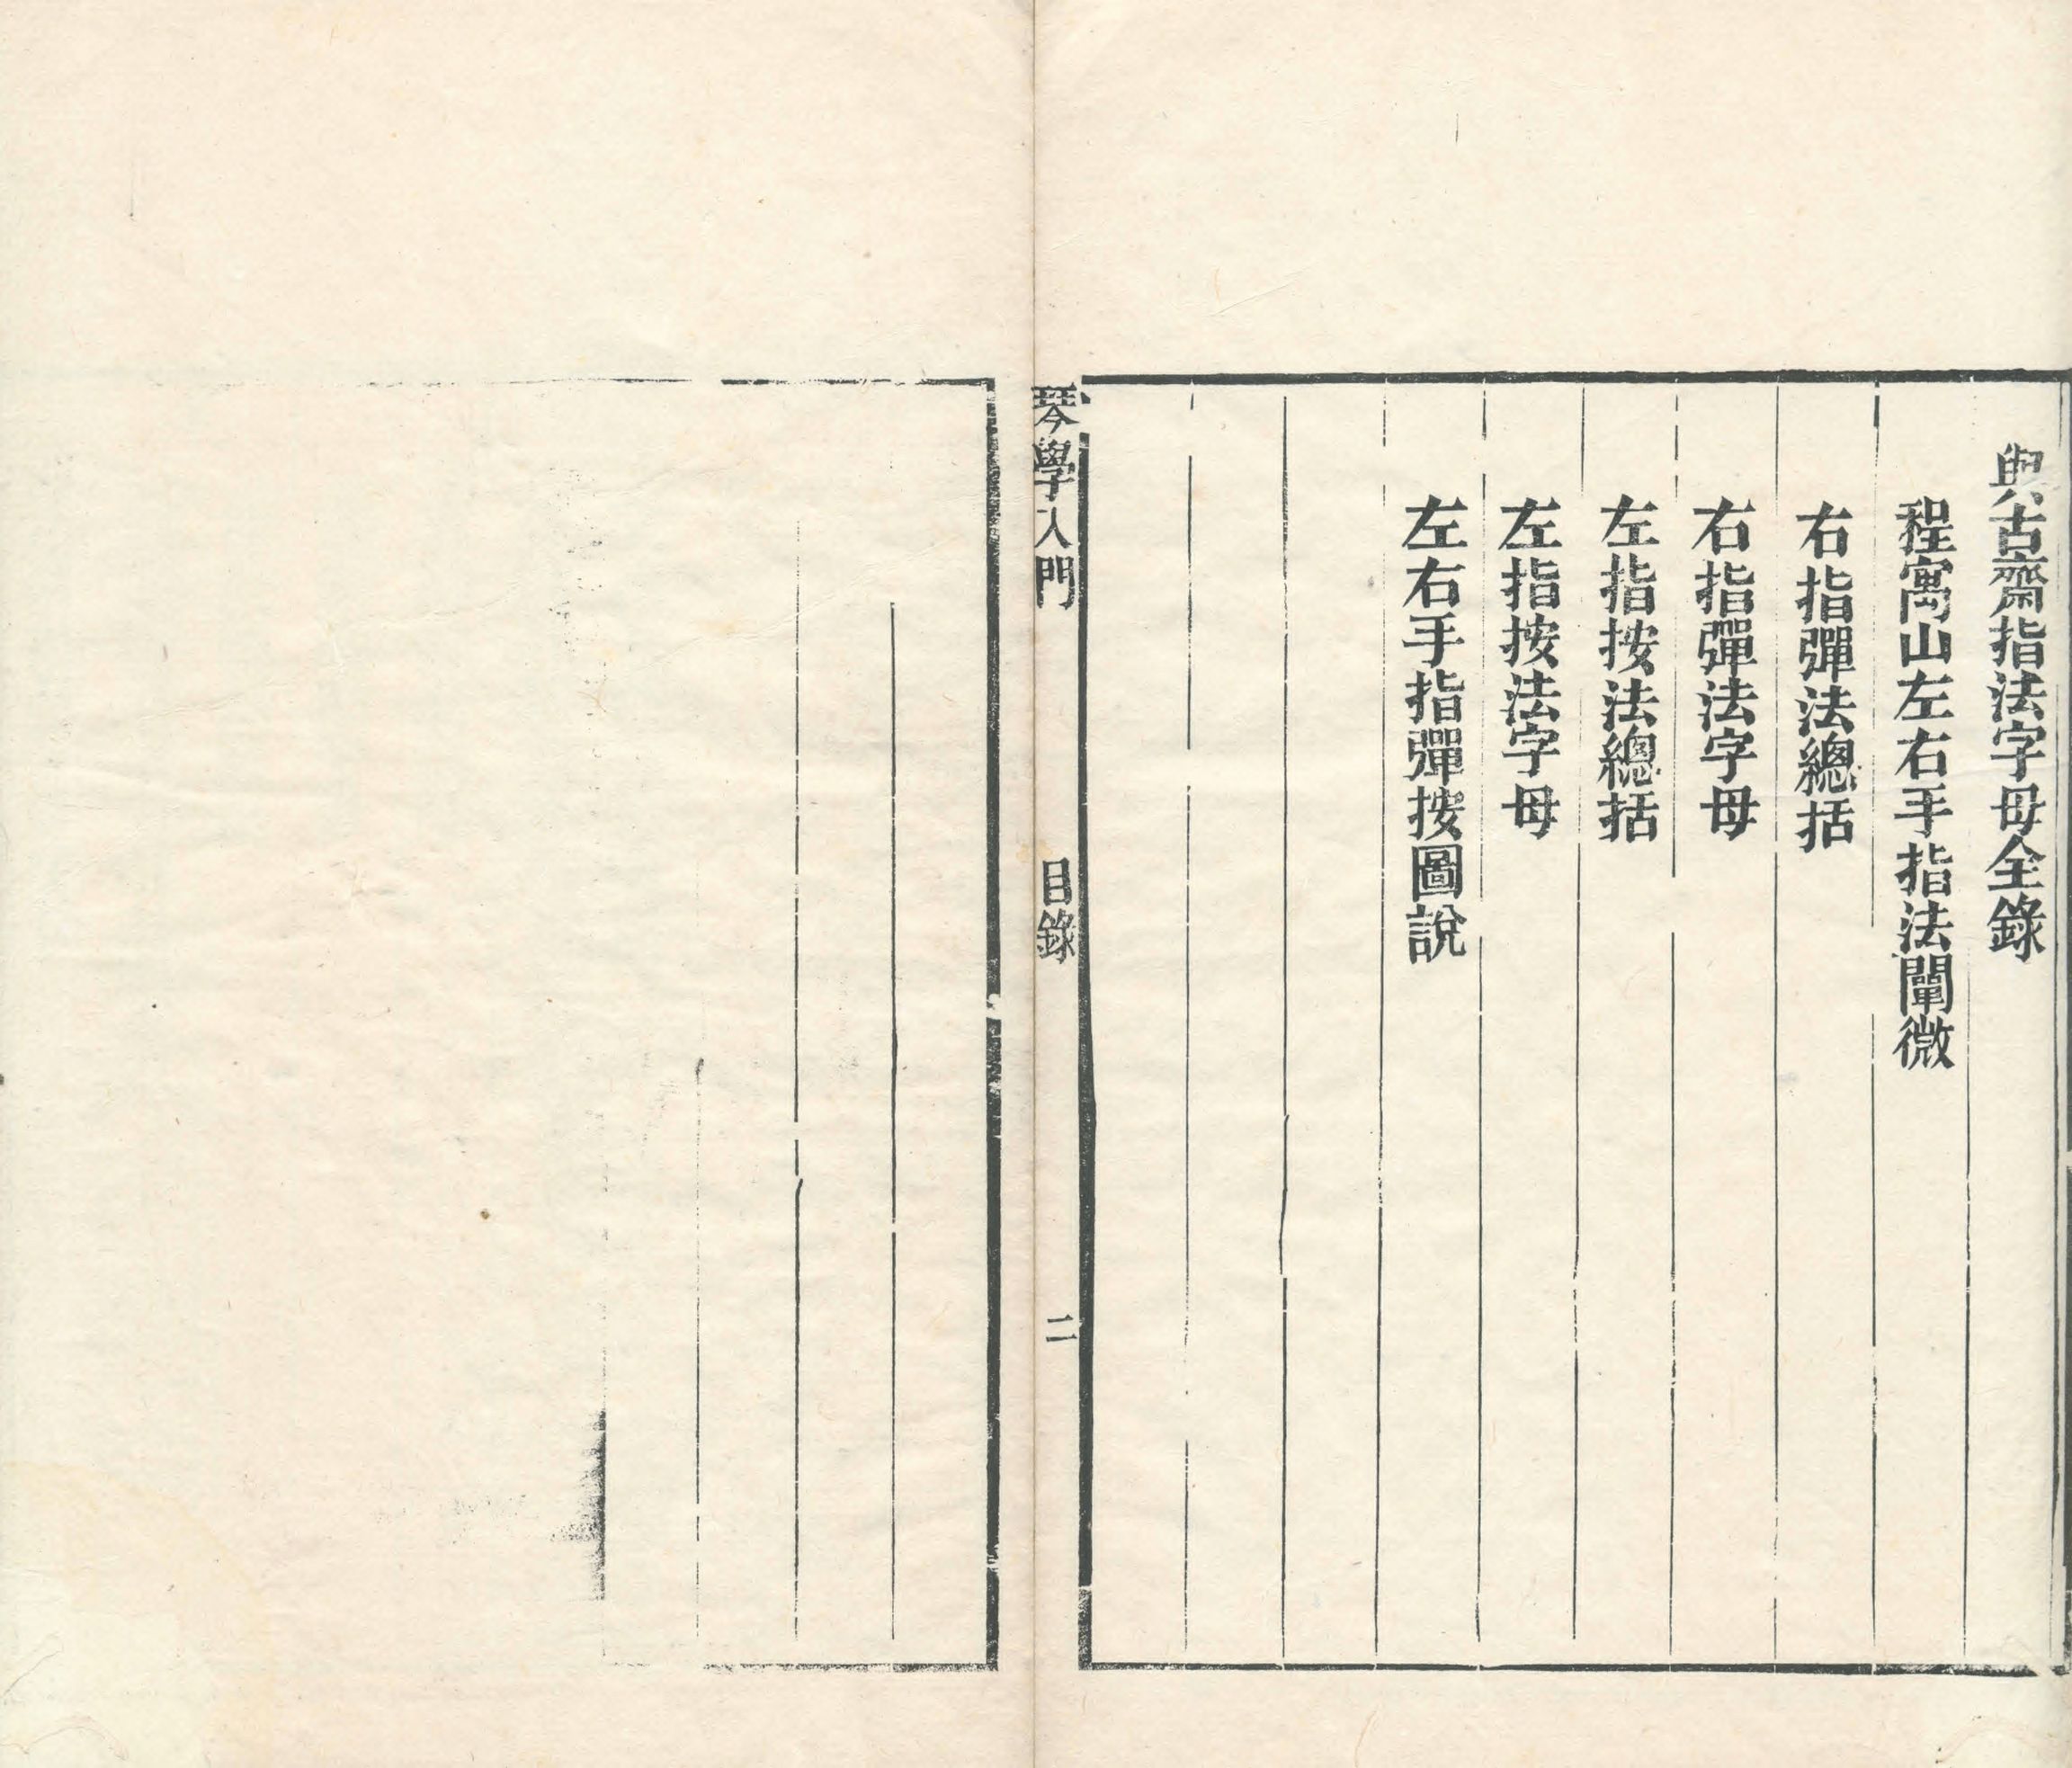 與古齋指法字母全錄
程寯山左右手指法闡微
右指彈法總括
右指彈法字母
左指按法總括
左指按法字母
左右手指彈按圖說
琴學入門
目錄
二